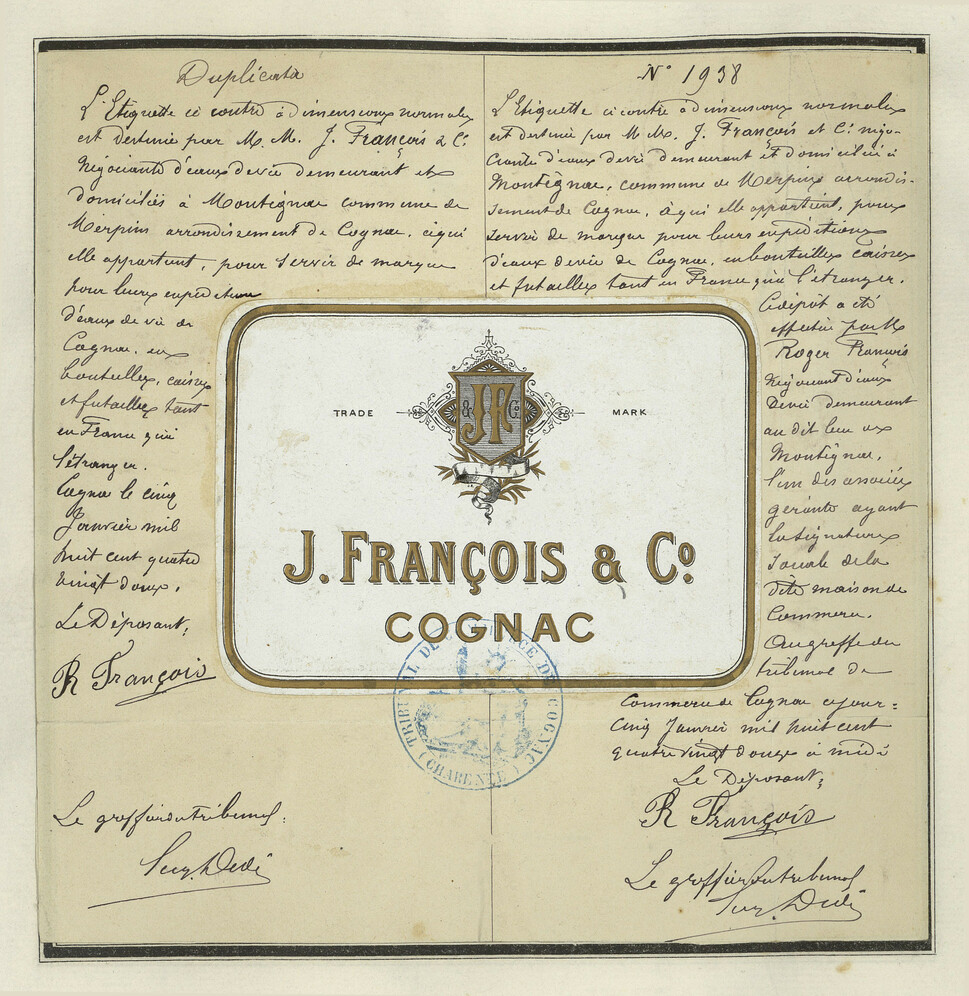 Duplicata
L'Etiquette ci contre à dimensions normales
est destinée par M. M. J. François & Cie
Négociants d'eaux de vie demeurant et
domiciliés à Montignac commune de
Merpins arrondissement de Cognac, à qui
elle appartient, pour servir de marque
pour leurs expéditions
d'eaux de vie de
Cognac, en
bouteilles, caisses
et futailles tant
en France qu'à
l'étranger.
Cognac le cinq
Janvier mil
huit cent quatre
vingt douze.
Le Déposant,
R François
Le greffier du tribunal.
N° 1938
L'Etiquette ci contre à dimensions normales
est destinée par M. M. J. François et Cie négo-
ciants d'eaux de vie demeurant et domiciliés à
Montignac, commune de Merpins arrondis-
sement de Cognac, à qui elle appartient, pour
servir de marque pour leurs expéditions
d'eaux de vie de Cognac, en bouteilles caisses
et futailles tant en France qu'à l'étranger.
Ce dépôt a été
effectué par M
Roger François
Négociant d'eaux
de vie demeurant
au dit lieu de
Montignac,
l'un des associés
gérants ayant
la signature
sociale de la
dite maison de
Commerce.
Au greffe du
tribunal de
Commerce de Cognac ce jour=
cinq Janvier mil huit cent
quatre vingt douze à midi
Le Déposant,
R François
Le greffier du tribunal
TRADE MARK
& JF Co
J. FRANÇOIS & Co
COGNAC
TRIBUNAL DE COMMERCE DE COGNAC
(CHARENTE)